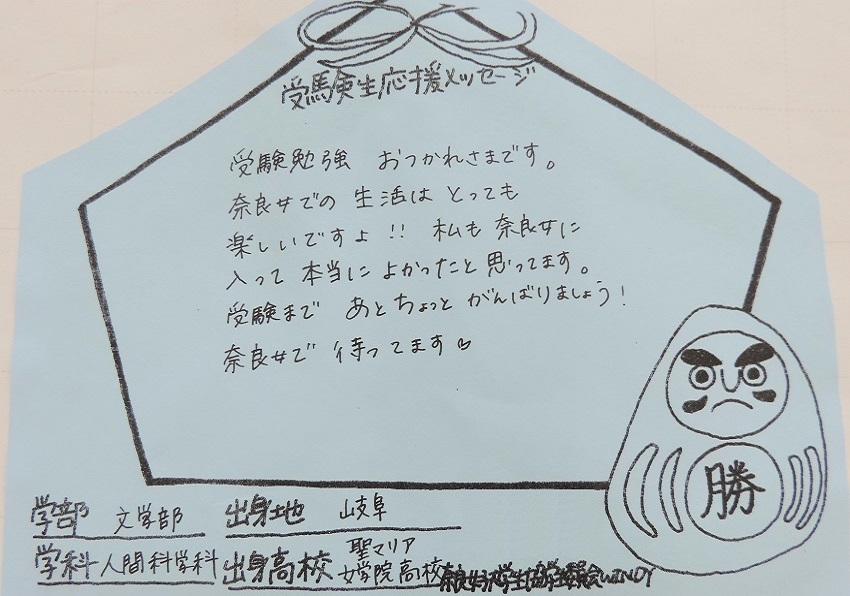 受験生応援メッセージ
受験勉強 おつかれさまです。
奈良女での 生活は とっても
楽しいですよ!! 私も 奈良女に
入って 本当に よかったと 思ってます。
受験まで あと ちょっと がんばりましょう!
奈良女で 待ってます♡
勝
学部 文学部 出身地 岐阜
学科 人間科学科 出身高校 聖マリア
女学院高校
WINDY